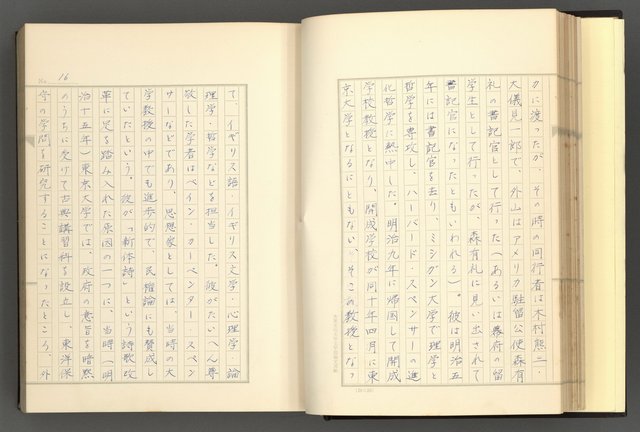 カに渡ったが、その時の同行者は木村熊二・
大儀見一郎で、外山はアメリカ駐留公使森有
礼の書記官として行った(あるいは幕府の留
学生として行ったが、森有礼に見い出されて
書記官になったともいわれる)。彼は明治五
年には書記官を去り、ミシガン大学で理学と
哲学を専攻し、ハーバード・スペンサーの進
化哲学に熱中した。明治九年に帰国して開成
学校教授となり、開成学校が同十年四月に東
京大学となるにともない、そこの教授となっ
No. 16
て、イギリス語・イギリス文学・心理学・論
理学・哲学などを担当した。彼がたいへん尊
敬した学者はベイン・カーペンター・スペン
サーなどであり、思想家としては、当時の大
学教授の中でも進歩的で、民権論にも賛成し
ていたという。彼が「新体詩」という詩歌改
革に足を踏み入れた原因の一つに、当時(明
治十五年)東京大学では、政府の意旨を暗黙
のうちに受けて古典講習科を設立し、東洋保
守の学問を研究することになったところ、外